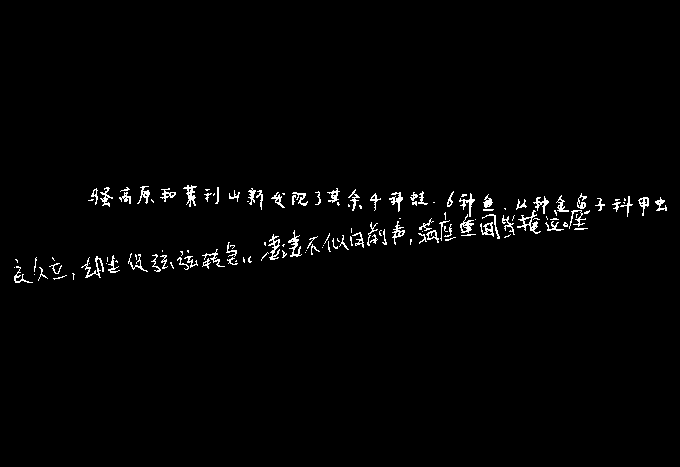 骚高原和莱利山新发现了其余4种蛙.6种鱼.以种金龟子科甲虫
良久立,却坐促弦弦转急.凄凄不似向前声,满座重闻皆掩泣。座